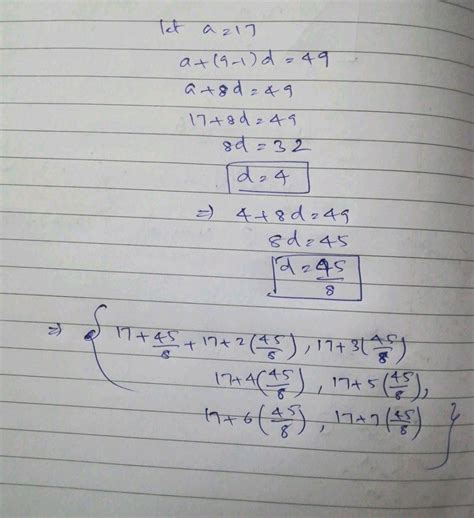 let a=17
a+(9-1)d=49
a+8d=49
17+8d=49
8d=32
d=4
⇒ 4+8d=49
8d=45
d=45/8
⇒ { 17+45/8+17+2(45/8), 17+3(45/8)
17+4(45/8), 17+5(45/8),
17+6(45/8), 17+7(45/8) }